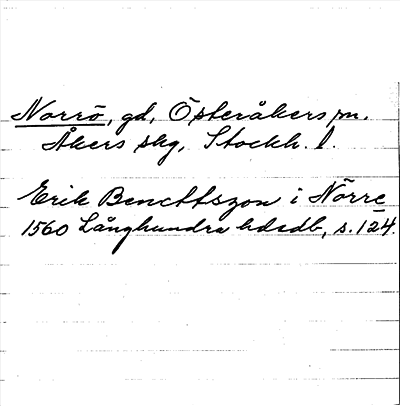 Norrö, gd, Österåkers sn.
Åkers skg, Stockh. l.
Erik Benchttszon i Nörre
1560 Långhundra hdsdb, s. 124.